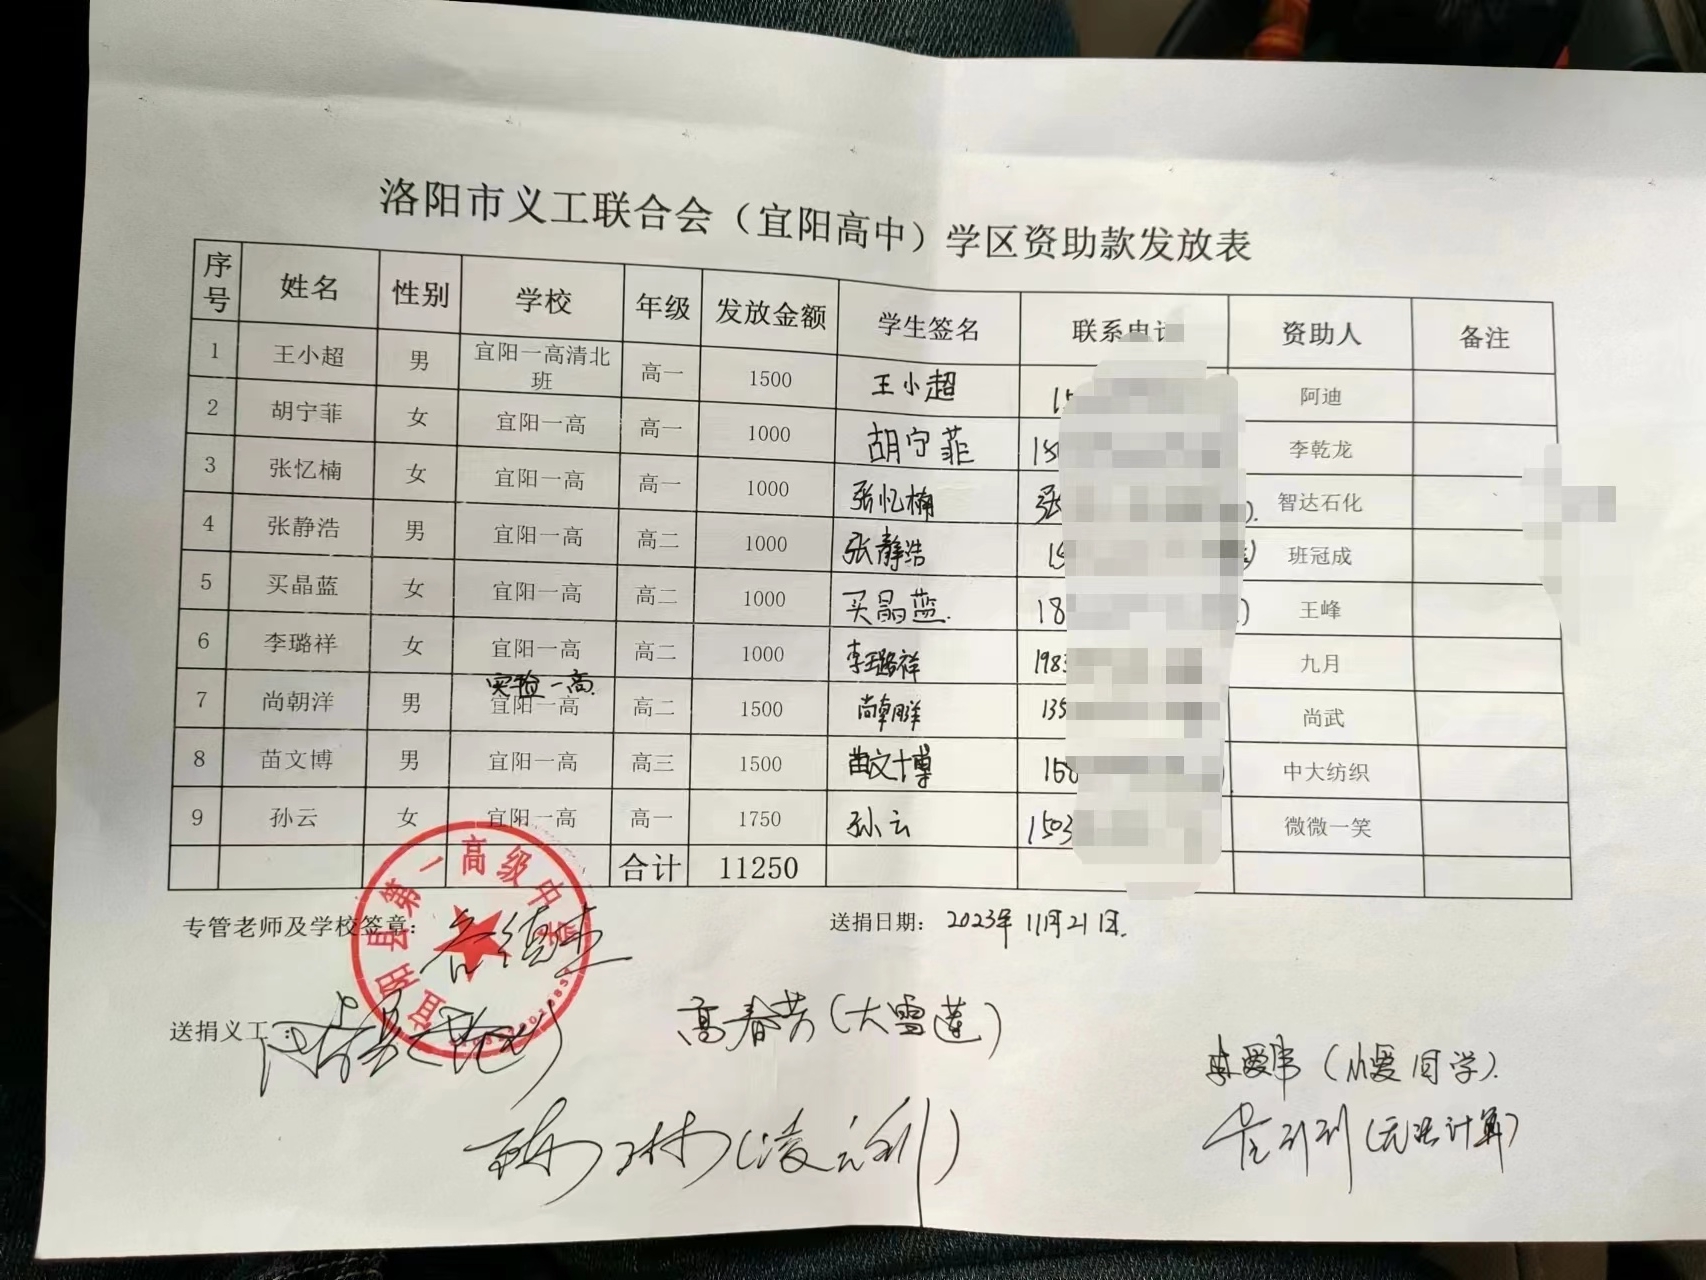 洛阳市义工联合会（宜阳高中）学区资助款发放表
序号 姓名 性别 学校 年级 发放金额 学生签名 联系电 资助人 备注
1 王小超 男 宜阳一高清北班 高一 1500 王小超 15 阿迪
2 胡宁菲 女 宜阳一高 高一 1000 胡宁菲 150 李乾龙
3 张忆楠 女 宜阳一高 高一 1000 张忆楠 张 智达石化
4 张静浩 男 宜阳一高 高二 1000 张静浩 15 班冠成
5 买晶蓝 女 宜阳一高 高二 1000 买晶蓝. 18 王峰
6 李璐祥 女 宜阳一高 高二 1000 李璐祥 198 九月
实验一高.
7 尚朝洋 男 宜阳一高 高二 1500 尚朝洋 135 尚武
8 苗文博 男 宜阳一高 高三 1500 苗文博 150 中大纺织
9 孙云 女 宜阳一高 高一 1750 孙云 1503 微微一笑
合计 11250
宜阳县第一高级中学
专管老师及学校签章： 送捐日期： 2023年11月21日.
送捐义工： 高春芳(大雪莲)
李爱伟(小爱同学).
(凌云利)
(无法计算)